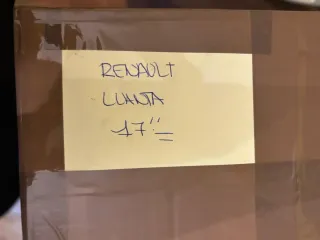 RENAULT
LLANTA
17"